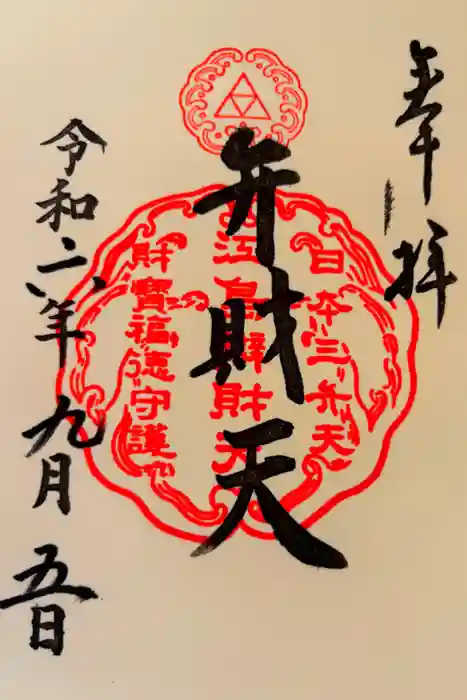 奉拝
日本三弁天
江島辨財天
財寶福徳守護
弁財天
令和六年九月五日